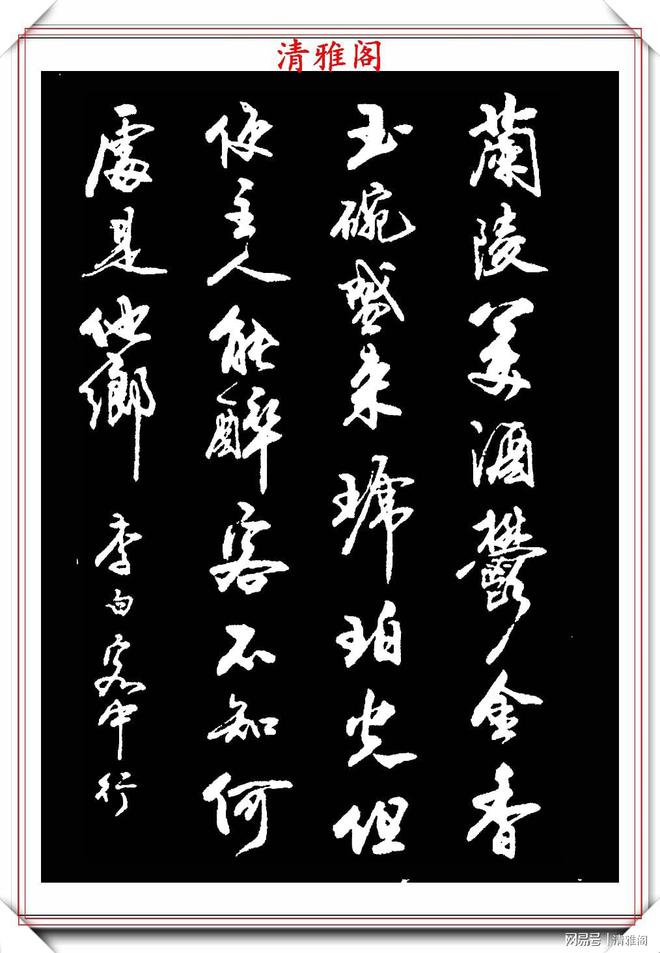 清雅阁
蘭陵美酒鬱金香
玉碗盛來琥珀光但
使主人能醉客不知何
處是他鄉 李白客中行
网易号|清雅阁